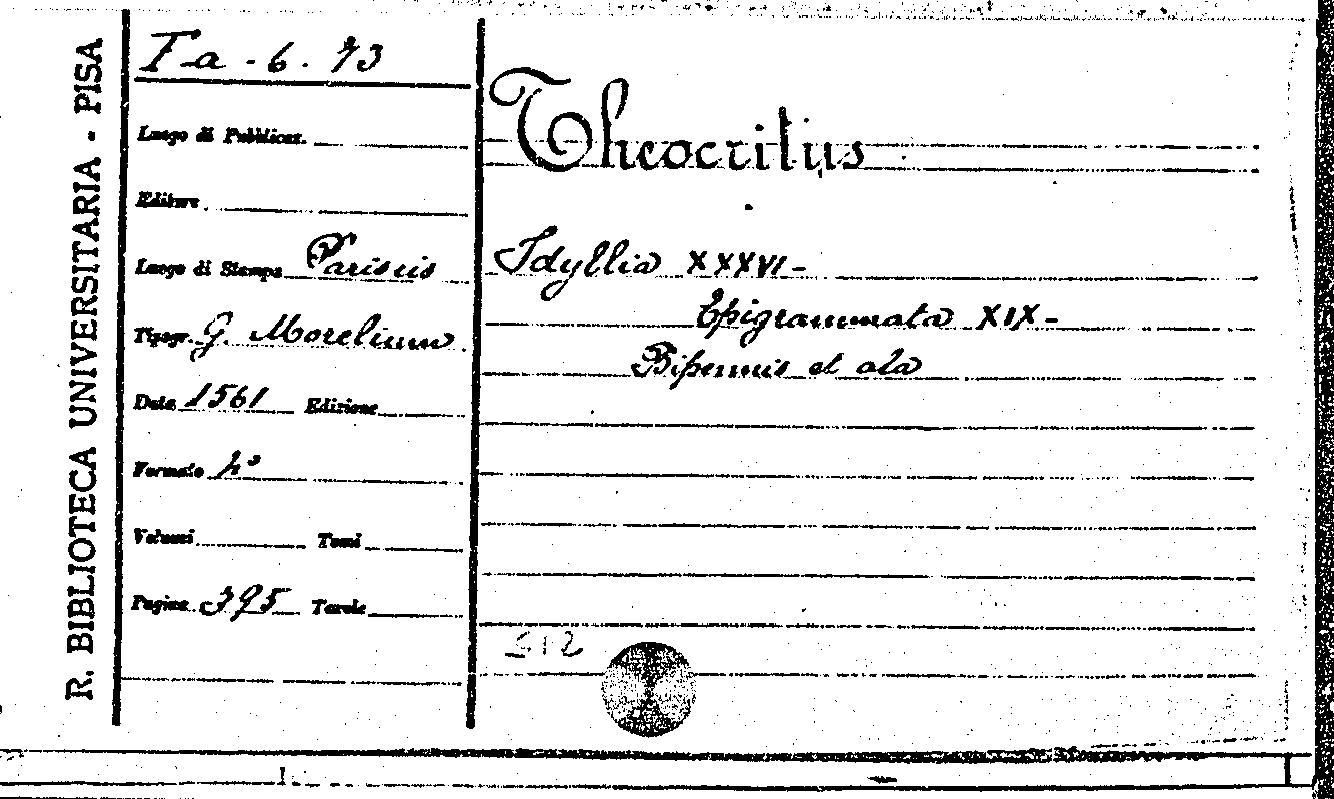 R. BIBLIOTECA UNIVERSITARIA - PISA
Fa - 6. 73
Luogo di Pubblicaz.
Editore
Luogo di Stampa Parisiis
Tipogr. G. Morelium
Data 1561 Edizione
Formato 4°
Volumi Tomi
Pagine 395 Tavole
Theocritus
Idyllia XXXVI -
Epigrammata XIX -
Bipennis et ala
512